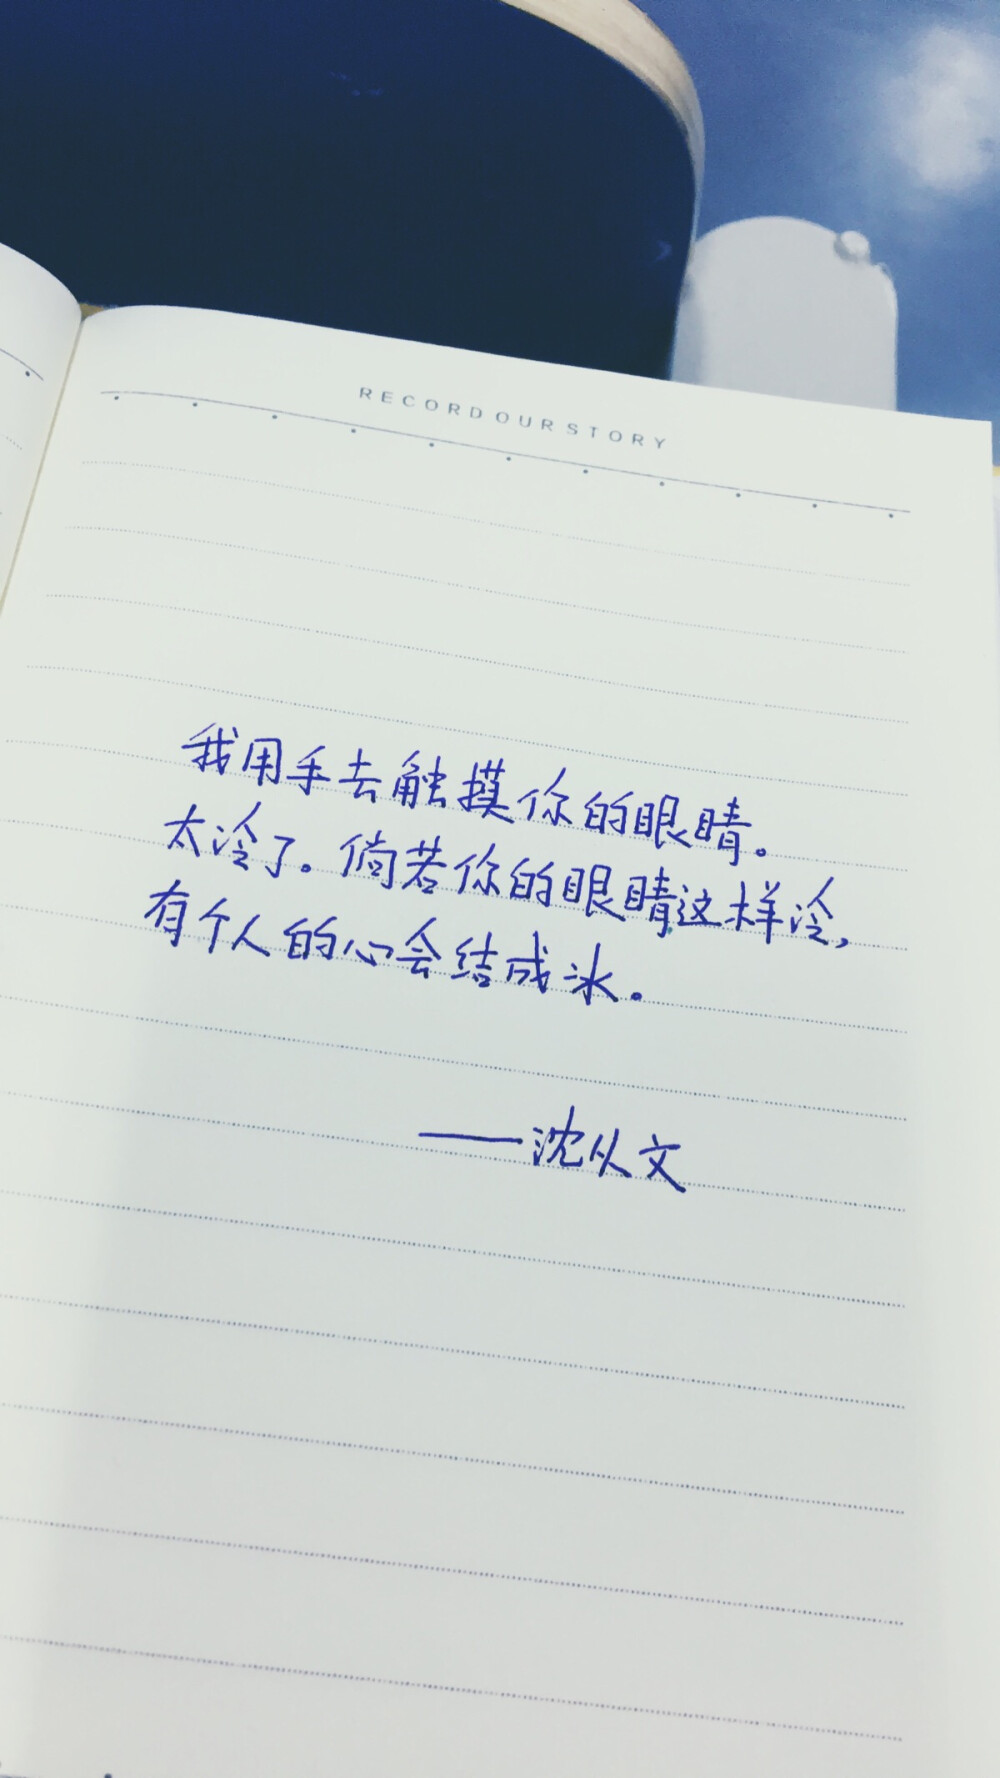 RECORD OUR STORY
我用手去触摸你的眼睛。
太冷了。倘若你的眼睛这样冷,
有个人的心会结成冰。
——沈从文